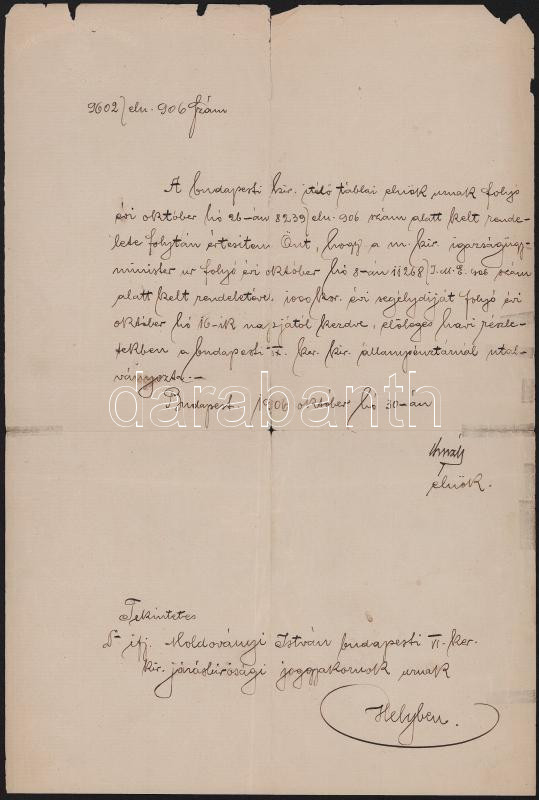 9602/eln. 906 szám
A budapesti kir. itélő táblai elnök urnak folyó
évi október hó 26-án 8239/eln. 906 szám alatt kelt rende-
lete folytán értesitem Önt, hogy a m. kir. igazságügy-
minister ur folyó évi október hó 8-án 11268/I.M.E. 906 szám
alatt kelt rendeletével 1000 kor. évi segélydiját folyó évi
október hó 16-ik napjától kezdve, előleges havi részle-
tekben a budapesti IX. ker. kir. állampénztárnál utal-
ványozta.-
Budapest 1906 október hó 30-án
elnök.
Tekintetes
Dr ifj. Moldoványi István budapesti VI. ker.
kir. járásbirósági joggyakornok urnak
Helyben.
darabanth